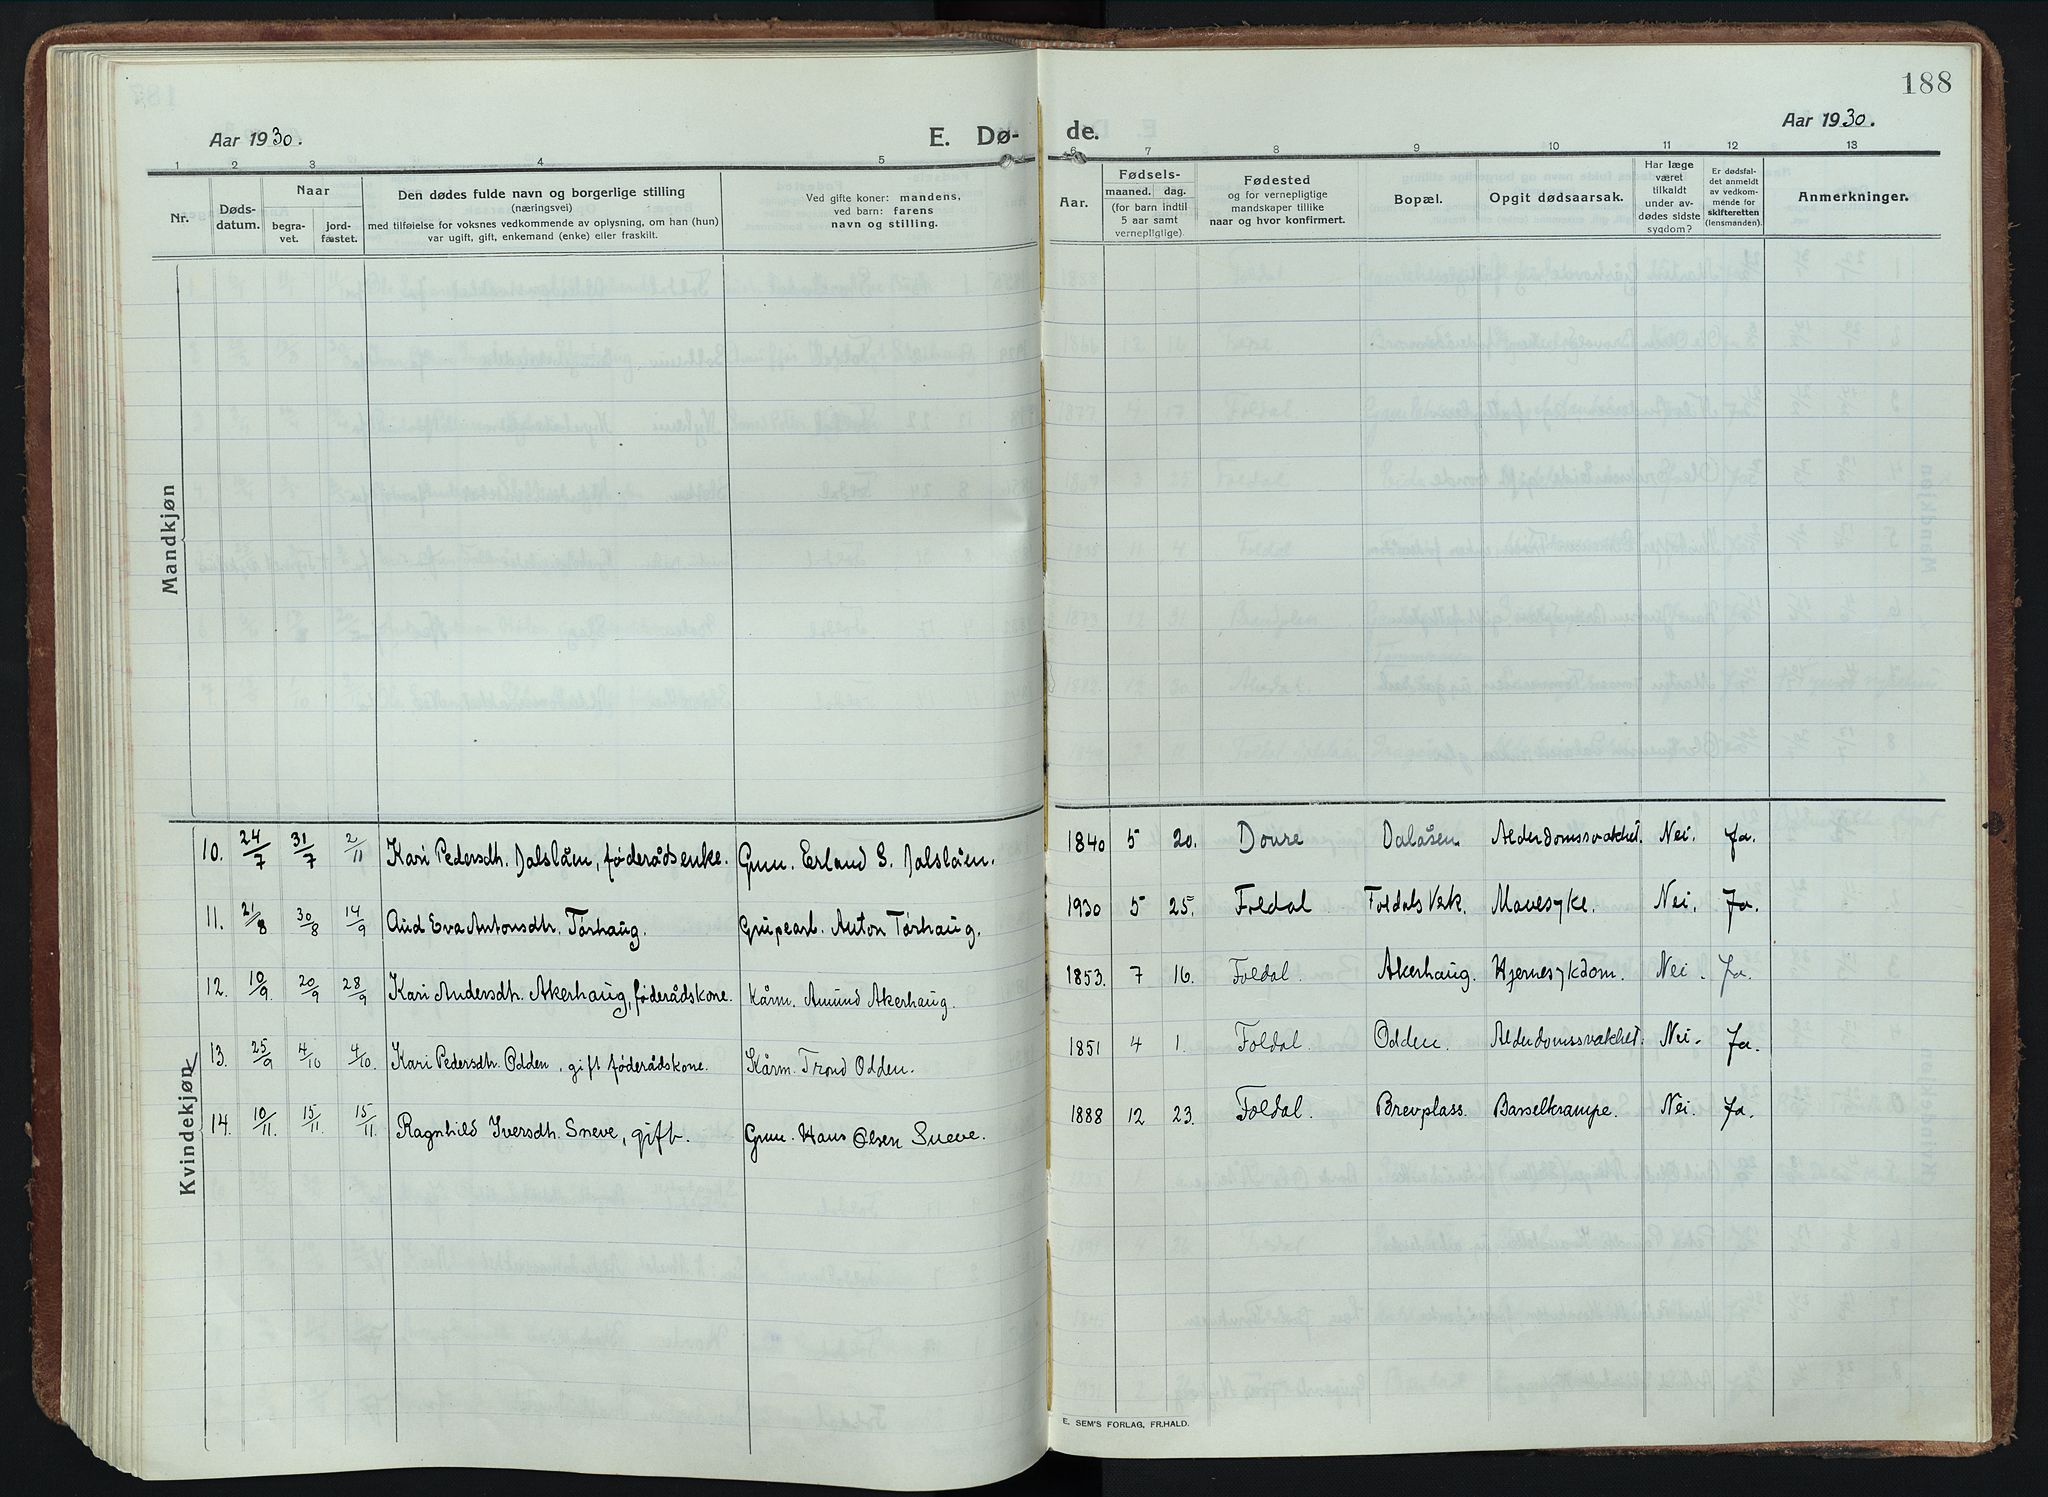 188
Aar 1930.
E. Dø- de.
Aar 1930.
1 2 3 4 5 6 7 8 9 10 11 12 13
Nr.
Døds-
datum.
Naar
begra-
vet.
jord-
fæstet.
Den dødes fulde navn og borgerlige stilling
(næringsvei)
med tilføielse for voksnes vedkommende av oplysning, om han (hun)
var ugift, gift, enkemand (enke) eller fraskilt.
Ved gifte koner: mandens,
ved barn: farens
navn og stilling.
Aar.
Fødsels-
maaned. dag.
(for barn indtil
5 aar samt
vernepligtige)
Fødested
og for vernepligtige
mandskaper tillike
naar og hvor konfirmert.
Bopæl.
Opgit dødsaarsak.
Har læge
været
tilkaldt
under av-
dødes sidste
sygdom?
Er dødsfal-
det anmeldt
av vedkom-
mende for
skifteretten
(lensmanden).
Anmerkninger.
Mandkjøn
Kvindekjøn
10. 24/7 31/7 2/11 Kari Pedersdh. Dalslåen, føderådsenke. Grun. Erland S. Dalslåen. 1840 5 20. Dovre Dalåsen. Alderdomssvakhet. Nei. Ja.
11. 21/8 30/8 14/9 Aud Eva Antonsdh. Tørhaug. Grupearb. Anton Tørhaug. 1930 5 25. Foldal Foldals Verk. Mavesyke. Nei. Ja.
12. 10/9 20/9 28/9 Kari Andersdh. Akerhaug, føderådskone. Kårm. Amund Akerhaug. 1853. 7 16. Foldal. Akerhaug. Hjernesykdom. Nei. Ja.
13. 25/9 4/10 4/10. Kari Pedersdh. Odden, gift føderådskone. Kårm. Trond Odden. 1851 4 1. Foldal. Odden. Alderdomssvakhet. Nei. Ja.
14. 10/11 15/11 15/11 Ragnhild Iversdh. Sneve, gift. Grun. Hans Olsen Sneve. 1888 12 23. Foldal. Brevplass. Barselkrampe. Nei. Ja.
E. SEM'S FORLAG, FR.HALD.